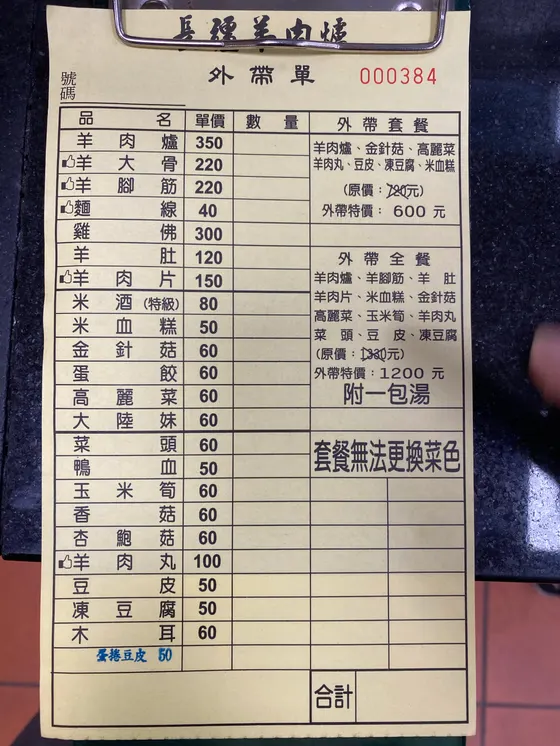 長彊羊肉爐
外帶單 000384
號碼
品名 單價 數量
羊肉爐 350
羊大骨 220
羊腳筋 220
麵線 40
雞佛 300
羊肚 120
羊肉片 150
米酒(特級) 80
米血糕 50
金針菇 60
蛋餃 60
高麗菜 60
大陸妹 60
菜頭 60
鴨血 50
玉米筍 60
香菇 60
杏鮑菇 60
羊肉丸 100
豆皮 50
凍豆腐 50
木耳 60
蛋捲豆皮 50
外帶套餐
羊肉爐、金針菇、高麗菜
羊肉丸、豆皮、凍豆腐、米血糕
(原價:720元)
外帶特價:600元
外帶全餐
羊肉爐、羊腳筋、羊肚
羊肉片、米血糕、金針菇
高麗菜、玉米筍、羊肉丸
菜頭、豆皮、凍豆腐
(原價:1330元)
外帶特價:1200元
附一包湯
套餐無法更換菜色
合計